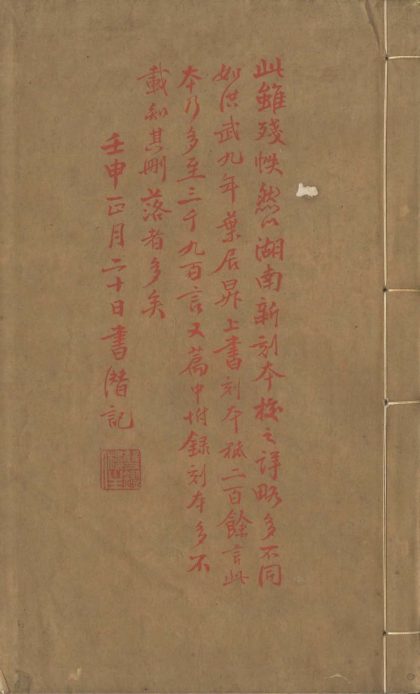 此雖殘帙然以湖南新刻本校之詳略多不同
如洪武九年葉居昇上書刻本祗二百餘言此
本乃多至三千九百言又篇中附錄刻本多不
載知其刪落者多矣
壬申正月二十日書潛記